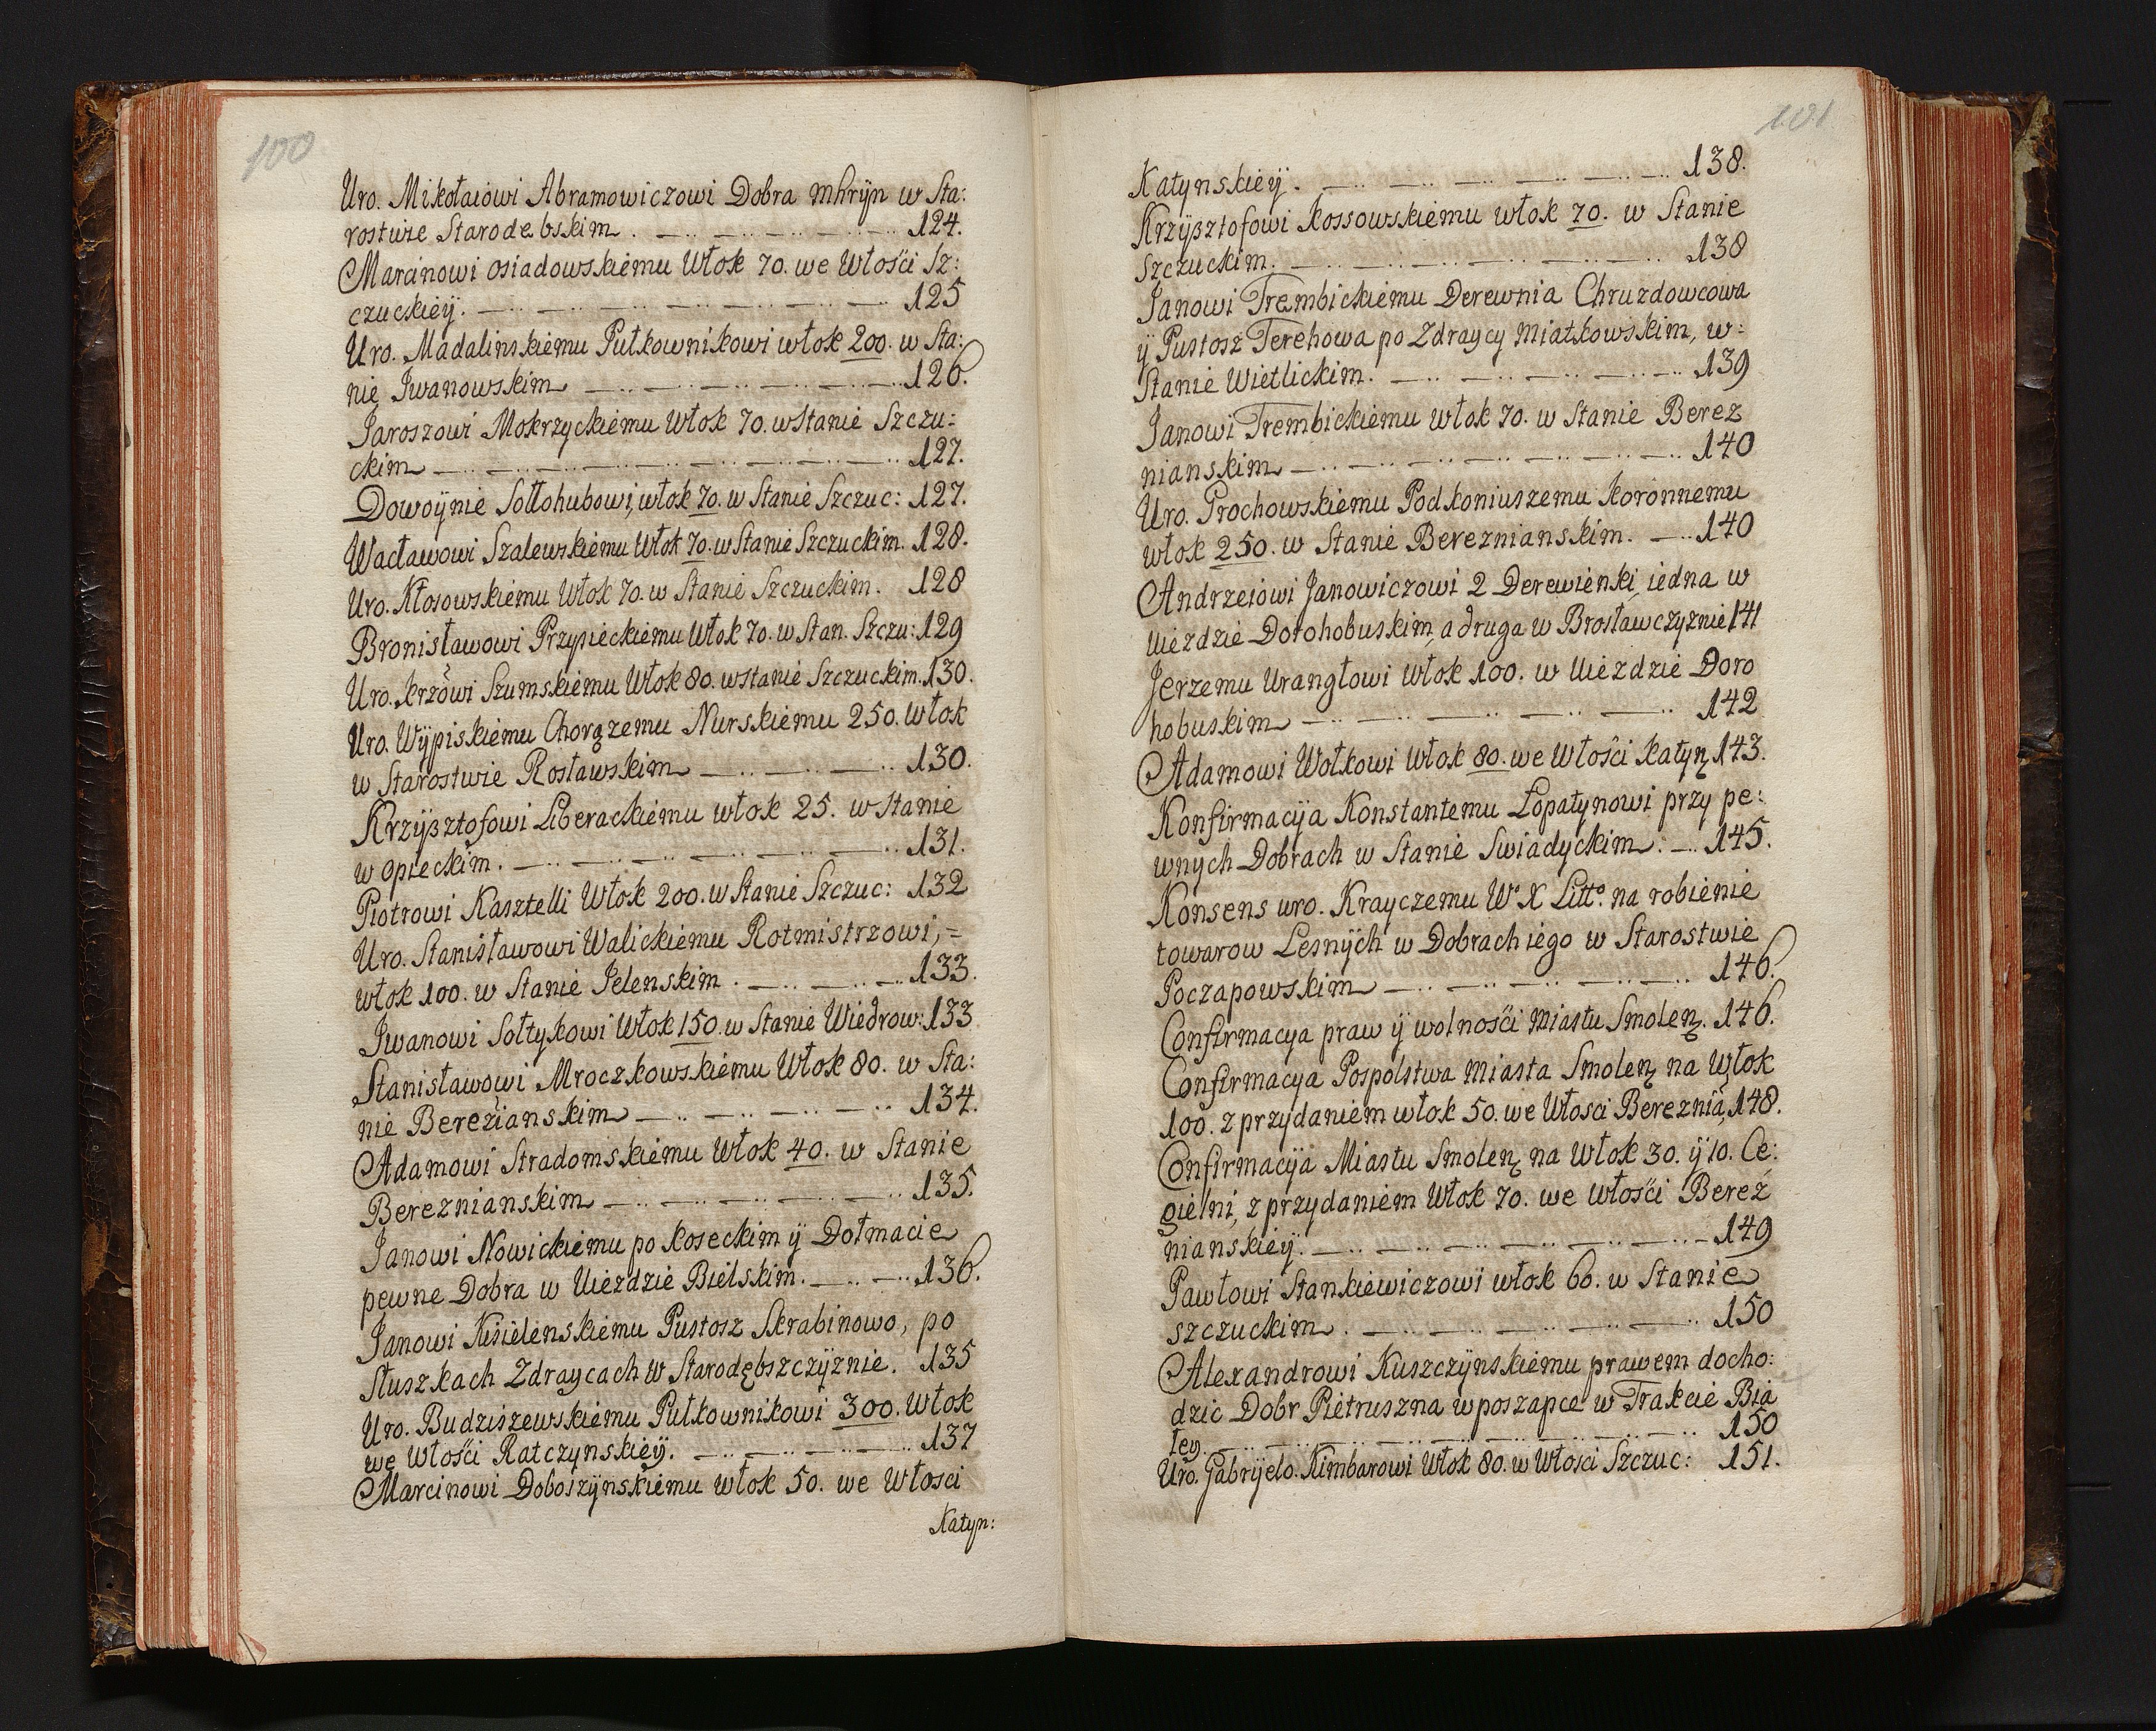 100
Uro. Mikołaiowi Abramowiczowi Dobra Mhryn w Sta:
rostwie Starodebskim. 124.
Marcinowi Osiadowskiemu Włok 70. we Włości Sz:
czuckiey. 125
Uro. Madalinskiemu Pułkownikowi włok 200. w Sta:
nie Jwanowskim 126.
Jaroszowi Mokrzyckiemu Włok 70. w Stanie Szczu:
ckim 127.
Dowoynie Sołłohubowi, włok 70. w Stanie Szczuc: 127.
Wacławowi Szalewskiemu Włok 70. w Stanie Szczuckim. 128.
Uro. Kłosowskiemu Włok 70. w Stanie Szczuckim. 128
Bronisławowi Przypieckiemu Włok 70. w Stan. Szczu: 129
Uro. Krzowi Szumskiemu Włok 80. w Stanie Szczuckim. 130.
Uro. Wÿpiskiemu Chorązemu Nurskiemu 250. Włok
w Starostwie Rosławskim 130.
Krzÿsztofowi Liberackiemu włok 25. w Stanie
w Opieckim. 131.
Piotrowi Kasztelli Włok 200. w Stanie Szczuc: 132
Uro. Stanisławowi Walickiemu Rotmistrzowi, =
włok 100. w Stanie Jelenskim. 133.
Jwanowi Sołtykowi Włok 150. w Stanie Wiedrow: 133
Stanisławowi Mroczkowskiemu Włok 80. w Sta:
nie Bereźianskim 134.
Adamowi Stradomskiemu Włok 40. w Stanie
Bereznianskim 135.
Janowi Nowickiemu po Koseckim ÿ Dołmacie
pewne Dobra w Uiezdzie Bielskim. 136.
Janowi Kisielenskiemu Pustosz Skrabinowo, po
Słuszkach Zdraycach w Starodębszczÿznie. 135
Uro. Budziszewskiemu Pułkownikowi 300. Włok
we Włości Ratczynskieÿ. 137
Marcinowi Doboszÿnskiemu włok 50. we Włosci
Katyn:
101
Katynskieÿ. 138.
Krzÿsztofowi Kossowskiemu włok 70. w Stanie
Szczuckim. 138
Janowi Trembickiemu Derewnia Chruzdowcowa
ÿ Pustosz Terehowa po Zdraycy Miatkowskim, w:
Stanie Wietlickim. 139
Janowi Trembickiemu włok 70. w Stanie Berez
nianskim 140
Uro. Grochowskiemu Podkoniuszemu Koronnemu
włok 250. w Stanie Bereznianskim. 140
Andrzeiowi Janowiczowi 2 Derewienki, iedna w
Uiezdzie Dorohobuskim, a druga w Brosławczyznie 141
Jerzemu Wrangłowi Włok 100. w Uiezdzie Doro
hobuskim 142
Adamowi Wołkowi Włok 80. we Włości Katyn 143.
Konfirmacÿa Konstantemu Łopatynowi przy pe:
wnych Dobrach w Stanie Swiadyckim. 145.
Konsens uro. Krayczemu W° X Litt° na robienie
towarow Lesnÿch w Dobrach iego w Starostwie
Poczapowskim 146.
Confirmacya praw ÿ wolności Miastu Smolen. 146.
Confirmacya Pospolstwa Miasta Smolen na Włok
100. z przydaniem włok 50. we Włosci Berezniã, 148.
Confirmacÿa Miastu Smolen na Włok 30. ÿ 10. Ce:
gielni, z przydaniem Włok 70. we Włości Bereź
nianskieÿ. 149
Pawłowi Stankiewiczowi włok 60. w Stanie
szczuckim. 150
Alexandrowi Kuszczÿnskiemu prawem docho:
dzic Dobr Pietruszna w poszapce w Trakcie Bia
łey. 150
Uro. Gabrÿelo. Kimbarowi Włok 80. w Włosci Szczuc: 151.